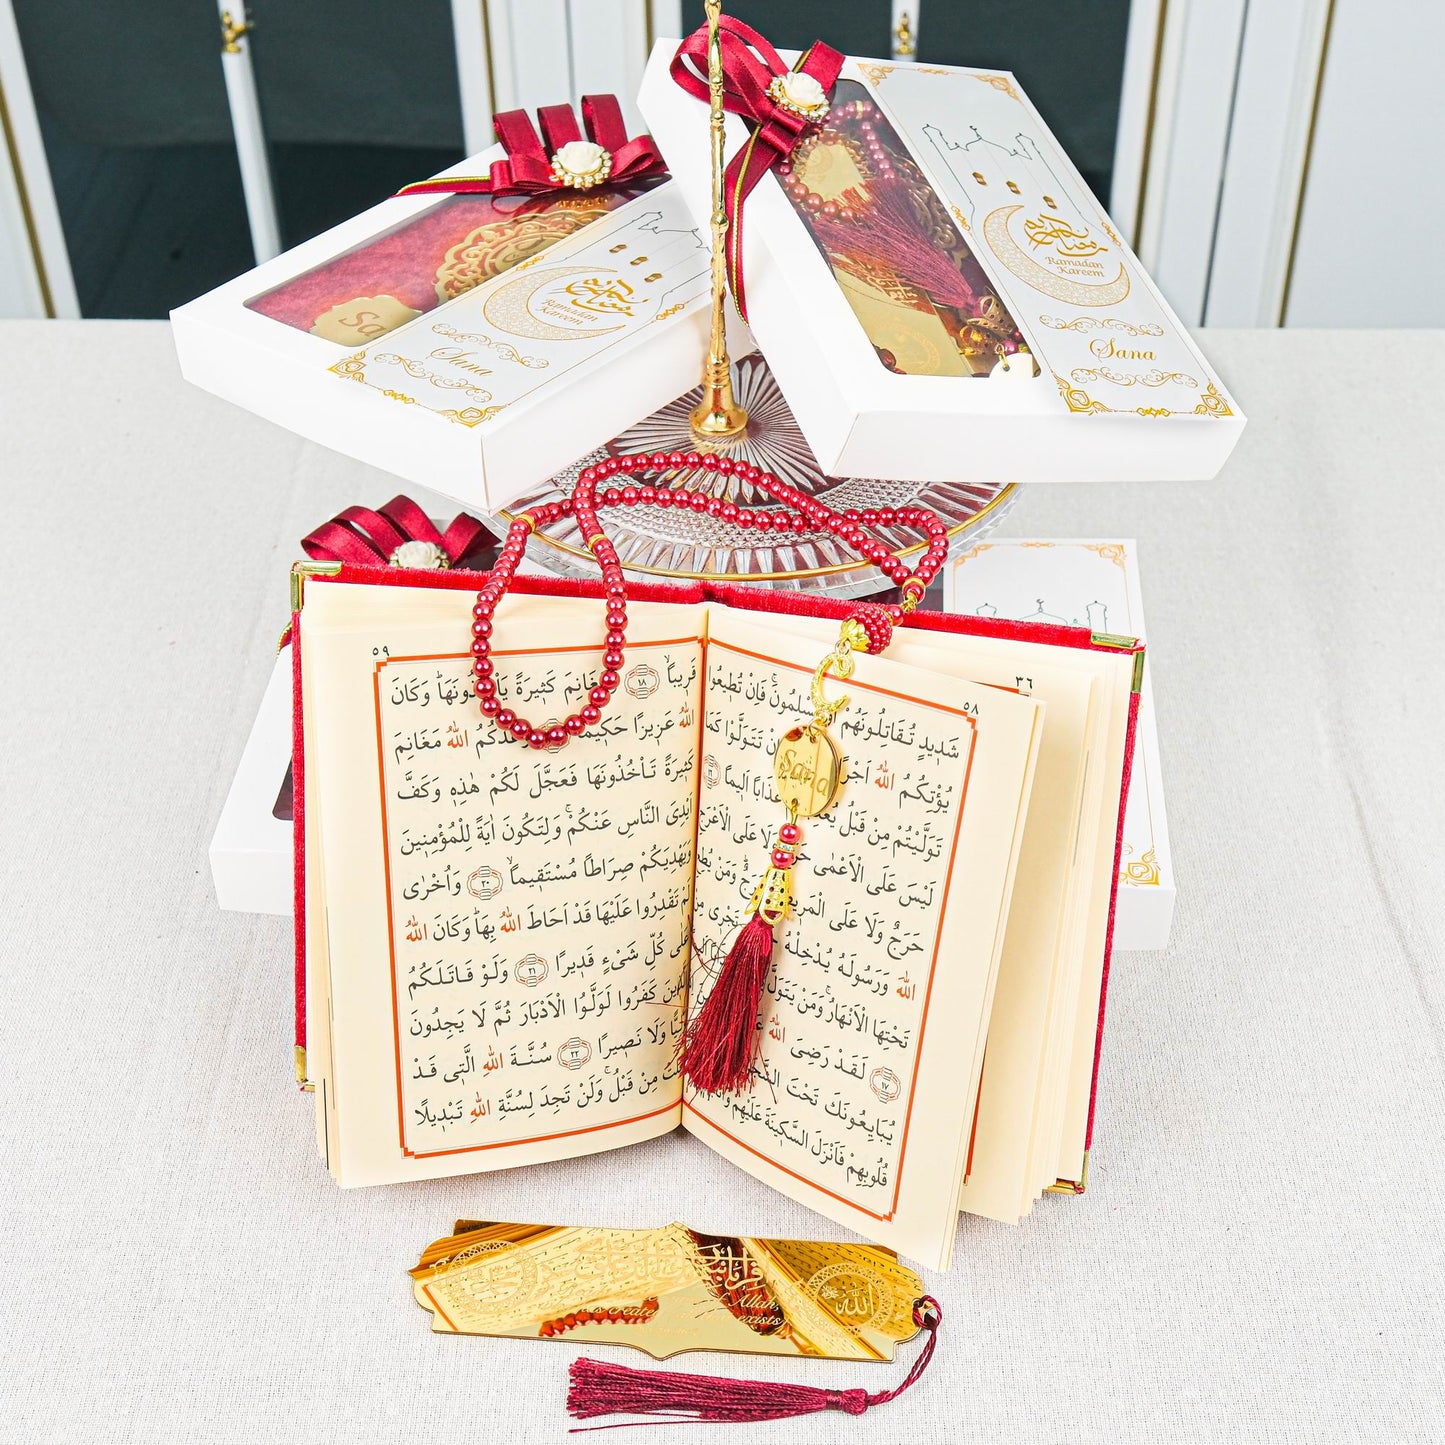 رمضان كريم
Ramadan
Kareem
Sana
رمضان كريم
Ramadan
Kareem
Sana
٥٨
شَدٖيدٍ تُقَاتِلُونَهُمْ اَوْ يُسْلِمُونَۚ فَاِنْ تُطٖيعُوا
يُؤْتِكُمُ اللّٰهُ اَجْرًا وَاِنْ تَتَوَلَّوْا كَمَا
تَوَلَّيْتُمْ مِنْ قَبْلُ عَذَابًا اَلٖيمًا ١٦
لَيْسَ عَلَى الْاَعْمٰى حَرَجٌ وَلَا عَلَى الْاَعْرَجِ
حَرَجٌ وَلَا عَلَى الْمَرٖيضِ حَرَجٌ وَمَنْ يُطِعِ
اللّٰهَ وَرَسُولَهُ يُدْخِلْهُ تَجْرٖى مِنْ
تَحْتِهَا الْاَنْهَارُۚ وَمَنْ يَتَوَلَّ
١٧ لَقَدْ رَضِىَ اللّٰهُ
يُبَايِعُونَكَ تَحْتَ الشَّجَرَةِ
قُلُوبِهِمْ فَاَنْزَلَ السَّكٖينَةَ عَلَيْهِمْ
٥٩
قَرٖيبًاۙ ١٨ وَمَغَانِمَ كَثٖيرَةً يَأْخُذُونَهَاۜ وَكَانَ
اللّٰهُ عَزٖيزًا حَكٖيمًا وَعَدَكُمُ اللّٰهُ مَغَانِمَ
كَثٖيرَةً تَأْخُذُونَهَا فَعَجَّلَ لَكُمْ هٰذِهٖ وَكَفَّ
اَيْدِىَ النَّاسِ عَنْكُمْۚ وَلِتَكُونَ اٰيَةً لِلْمُؤْمِنٖينَ
وَيَهْدِيَكُمْ صِرَاطًا مُسْتَقٖيمًاۙ ٢٠ وَاُخْرٰى
لَمْ تَقْدِرُوا عَلَيْهَا قَدْ اَحَاطَ اللّٰهُ بِهَاۜ وَكَانَ اللّٰهُ
عَلٰى كُلِّ شَىْءٍ قَدٖيرًا ٢١ وَلَوْ قَاتَلَكُمُ
الَّذٖينَ كَفَرُوا لَوَلَّوُا الْاَدْبَارَ ثُمَّ لَا يَجِدُونَ
وَلِيًّا وَلَا نَصٖيرًا ٢٢ سُنَّةَ اللّٰهِ الَّتٖى قَدْ
خَلَتْ مِنْ قَبْلُۚ وَلَنْ تَجِدَ لِسُنَّةِ اللّٰهِ تَبْدٖيلًا
٣٦
Sana
الله